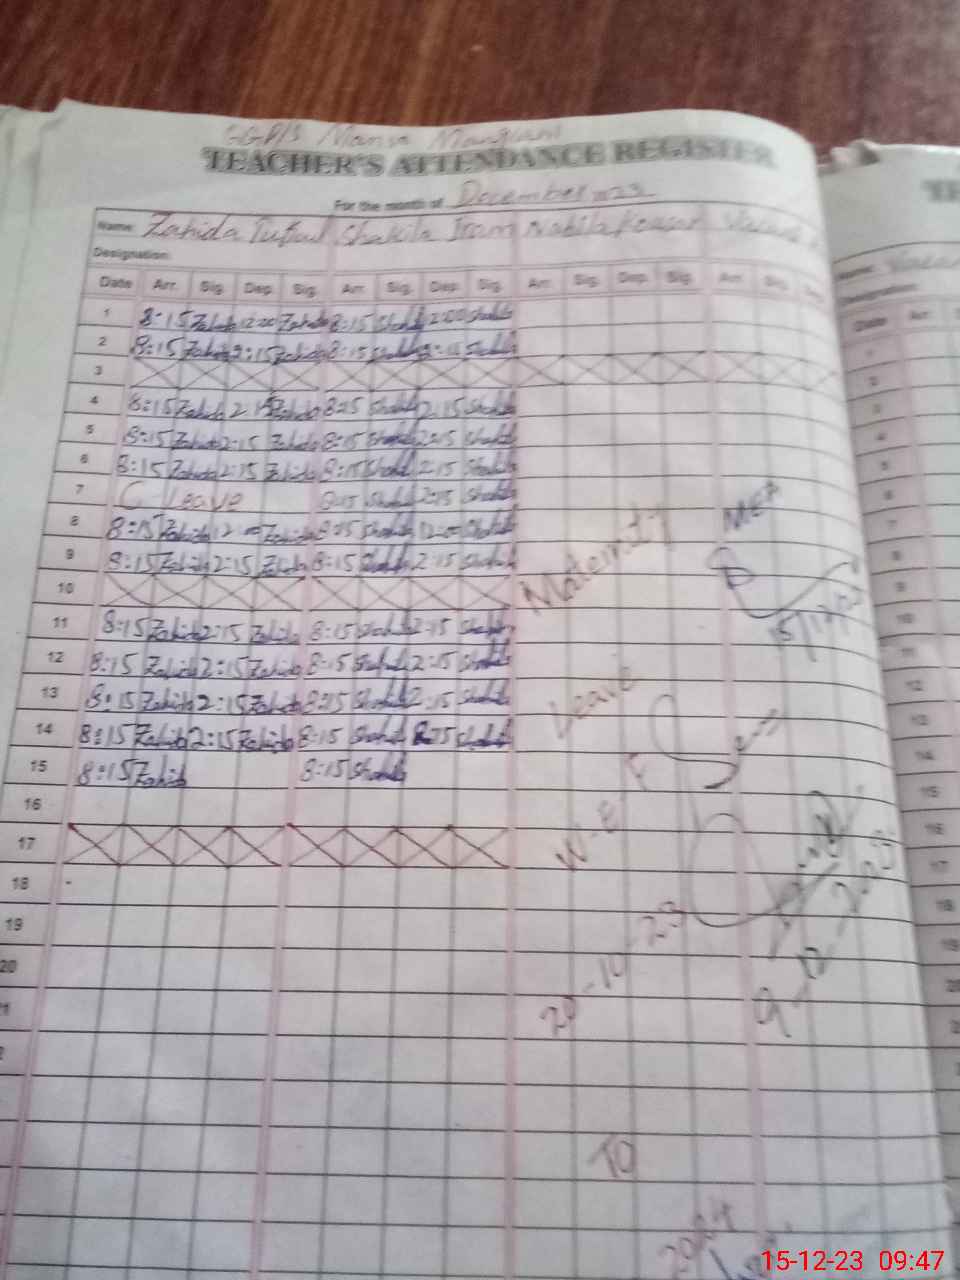 TEACHER'S ATTENDANCE REGISTER
For the month of December
Name: Zahida Tufail Shakila Iram Nabila Kousar
Designation:
Date Arr. Sig. Dep. Sig. Arr. Sig. Dep. Sig. Arr. Sig. Dep. Sig. Arr. Sig.
1 8:15 Zahida 12:00 Zahida 8:15 Shakila 2:00 Shakila
2 8:15 Zahida 2:15 Zahida 8:15 Shakila 2:15 Shakila
3
4 8:15 Zahida 2:15 Zahida 8:15 Shakila 2:15 Shakila
5 8:15 Zahida 2:15 Zahida 8:15 Shakila 2:15 Shakila
6 8:15 Zahida 2:15 Zahida 8:15 Shakila 2:15 Shakila
7 C Leave 8:15 Shakila 2:15 Shakila
8 8:15 Zahida 12:00 Zahida 8:15 Shakila 12:00 Shakila
9 8:15 Zahida 2:15 Zahida 8:15 Shakila 2:15 Shakila
10
11 8:15 Zahida 2:15 Zahida 8:15 Shakila 2:15 Shakila
12 8:15 Zahida 2:15 Zahida 8:15 Shakila 2:15 Shakila
13 8:15 Zahida 2:15 Zahida 8:15 Shakila 2:15 Shakila
14 8:15 Zahida 2:15 Zahida 8:15 Shakila 2:15 Shakila
15 8:15 Zahida 8:15 Shakila
16
17
18
19
20
Maternity
Leave
W-E-F
20-10-23
TO
MEA
15/12/23
9-12-2023
Name:
Designation:
Date Arr.
1
2
3
4
5
6
7
8
9
10
11
12
13
14
15
16
17
18
19
20
15-12-23 09:47